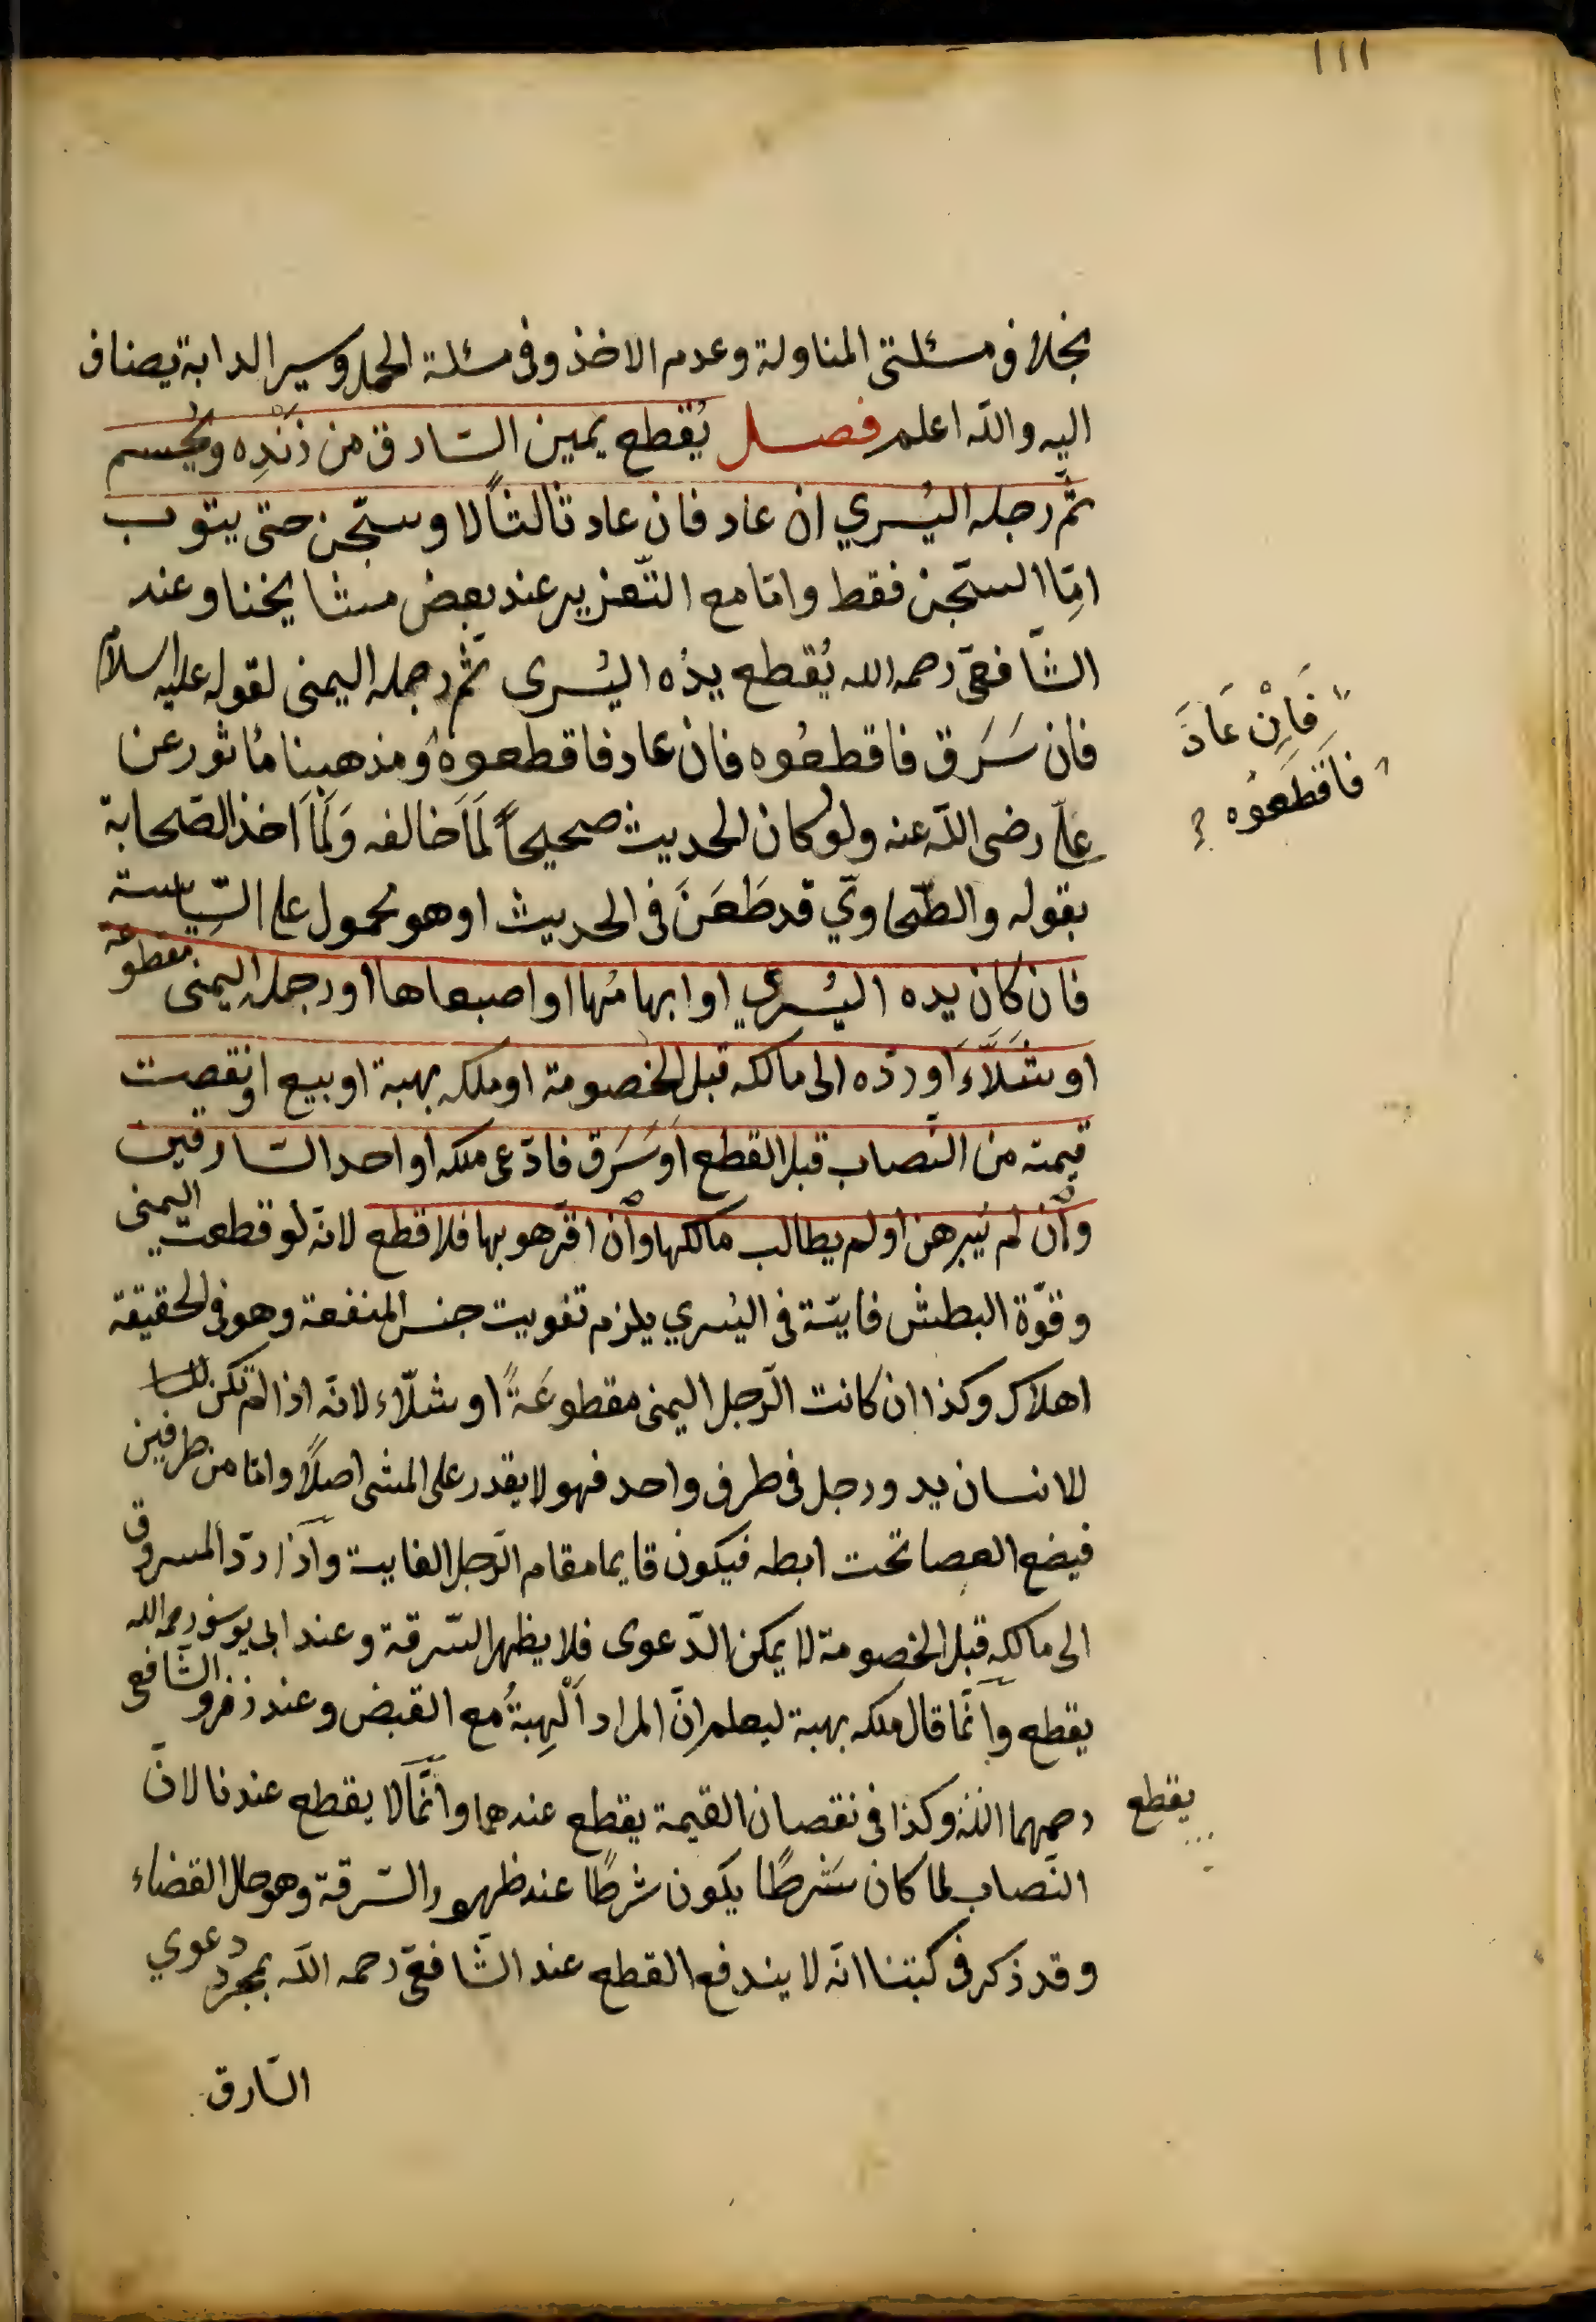 ١١١
بخلاف مسئلتى المناولة وعدم الاخذ وفى مسئلة الحمل وسير الدابة يضاف
اليه والله اعلم فصل يُقطع يمين السّارق من زَنْدِه ويُحسم
ثمّ رجله اليُسري ان عاد فان عاد ثالثاً لا وسجن حتى يتوب
امّا السّجن فقط وامّا مع التّعزير عند بعض مشايخنا وعند
الشّافعىّ رحمه الله يُقطع يدُه اليُسرى ثمّ رجله اليمنى لقوله عليه السلام
فان سَرَق فاقطعُوه فان عاد فاقطعوه ومذهبنا مأثور عن
علىّ رضى الله عنه ولو كان الحديث صحيحاً لَمَا خالفه وَلَمَا اخذ الصّحابة
بقوله والطّحاويّ قد طَعَنَ فى الحديث او هو محمول على السّياسة
فان كان يده اليُسري او ابهامُها او اصبعاها او رجله اليمنى مقطوعة
او شَلَّاءَ او ردّه الى مالكه قبل الخصومة او ملكه بهبة او بيع او نقصت
قيمته من النّصاب قبل القطع او سَرَق فادّعى ملكه او احد السّارقين
وان لم يُبرهن او لم يطالب مالكها وان اقرّ هو بها فلا قطع لانّه لو قطعت اليمنى
وقوّة البطش فايتة فى اليُسري يلزم تفويت جنس المنفعة وهو فى الحقيقة
اهلاك وكذا ان كانت الرّجل اليمنى مقطوعَةً او شلّاء لانّه اذا لم تكن
للانسان يد ورجل فى طرف واحد فهو لا يقدر على المشى اصلاً وامّا من طرفين
فيضع العصا تحت ابطه فيكون قايما مقام الرّجل الفايتة واذا ردّ المسروق
الى مالكه قبل الخصومة لا يمكن الدّعوى فلا يظهر السّرقة وعند ابى يوسف رحمه الله
يقطع وانّما قال ملكه بهبة ليعلم انّ المراد الْهِبَةُ مع القبض وعند زفر والشّافعى
رحمهما الله وكذا فى نقصان القيمة يقطع عندهما وانّما لا يقطع عندنا لانّ
النّصاب لما كان شرطًا يكون شرطًا عند ظهور السّرقة وهو حال القضاء
وقد ذكر فى كتبنا انّه لا يندفع القطع عند الشّافعىّ رحمه الله بمجرد دعوي
السّارق
فَاِنْ عَادَ
فاقطَعوُه ?
يقطع